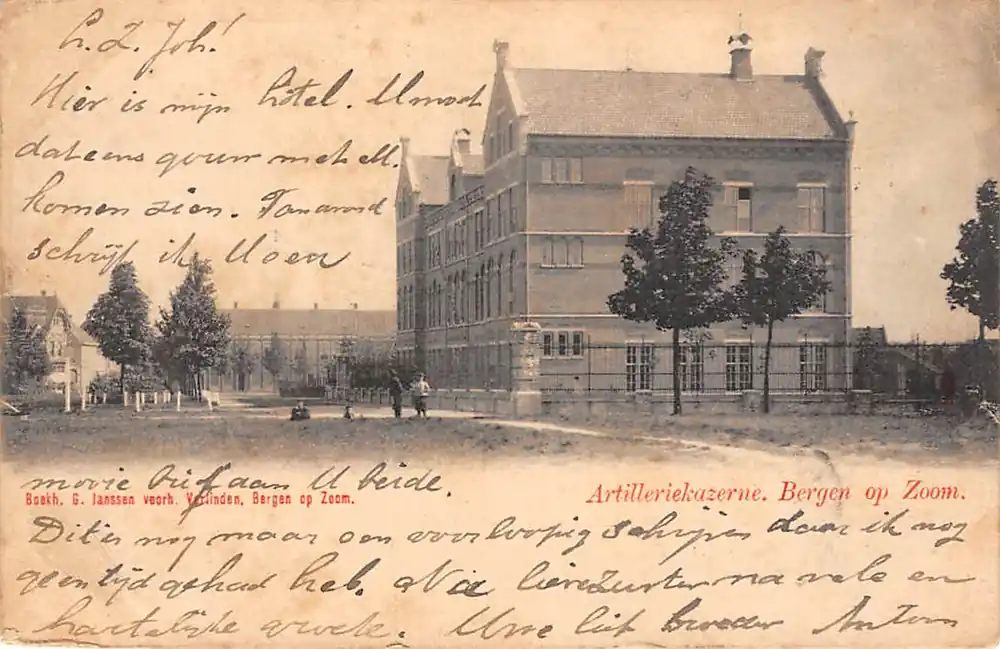 L. Z. Joh!
Hier is mijn hôtel. U moet
dat eens gauw met ell.
komen zien. Vanavond
schrijf ik U een
mooie brief aan U beide.
Boekh. G. Janssen voorh. Verlinden, Bergen op Zoom.
Artilleriekazerne. Bergen op Zoom.
Dit is nog maar een voorloopig schrijven daar ik nog
geen tijd gehad heb. Nu lieve zuster na vele en
hartelijke groete. Uwe lief broeder Antoon